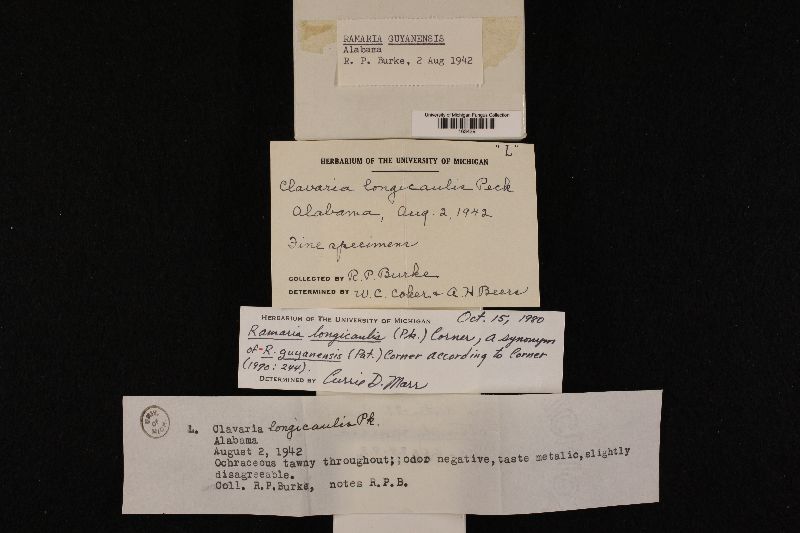 RAMARIA GUYANENSIS
Alabama
R. P. Burke, 2 Aug 1942
University of Michigan Fungus Collection
"L"
HERBARIUM OF THE UNIVERSITY OF MICHIGAN
Clavaria longicaulis Peck
Alabama, Aug. 2, 1942
Fine specimens
COLLECTED BY R.P. Burke
DETERMINED BY W.C. Coker & A.H Beers
HERBARIUM OF THE UNIVERSITY OF MICHIGAN Oct. 15, 1980
Ramaria longicaulis (Pk.) Corner, a synonym
of R. guyanensis (Pat.) Corner according to Corner
(1970: 244).
DETERMINED BY Currie D. Marr
UNIV. OF MICH
L. Clavaria longicaulis Pk.
Alabama
August 2, 1942
Ochraceous tawny throughout; odor negative, taste metalic, slightly
disagreeable.
Coll. R.P.Burke, notes R.P.B.